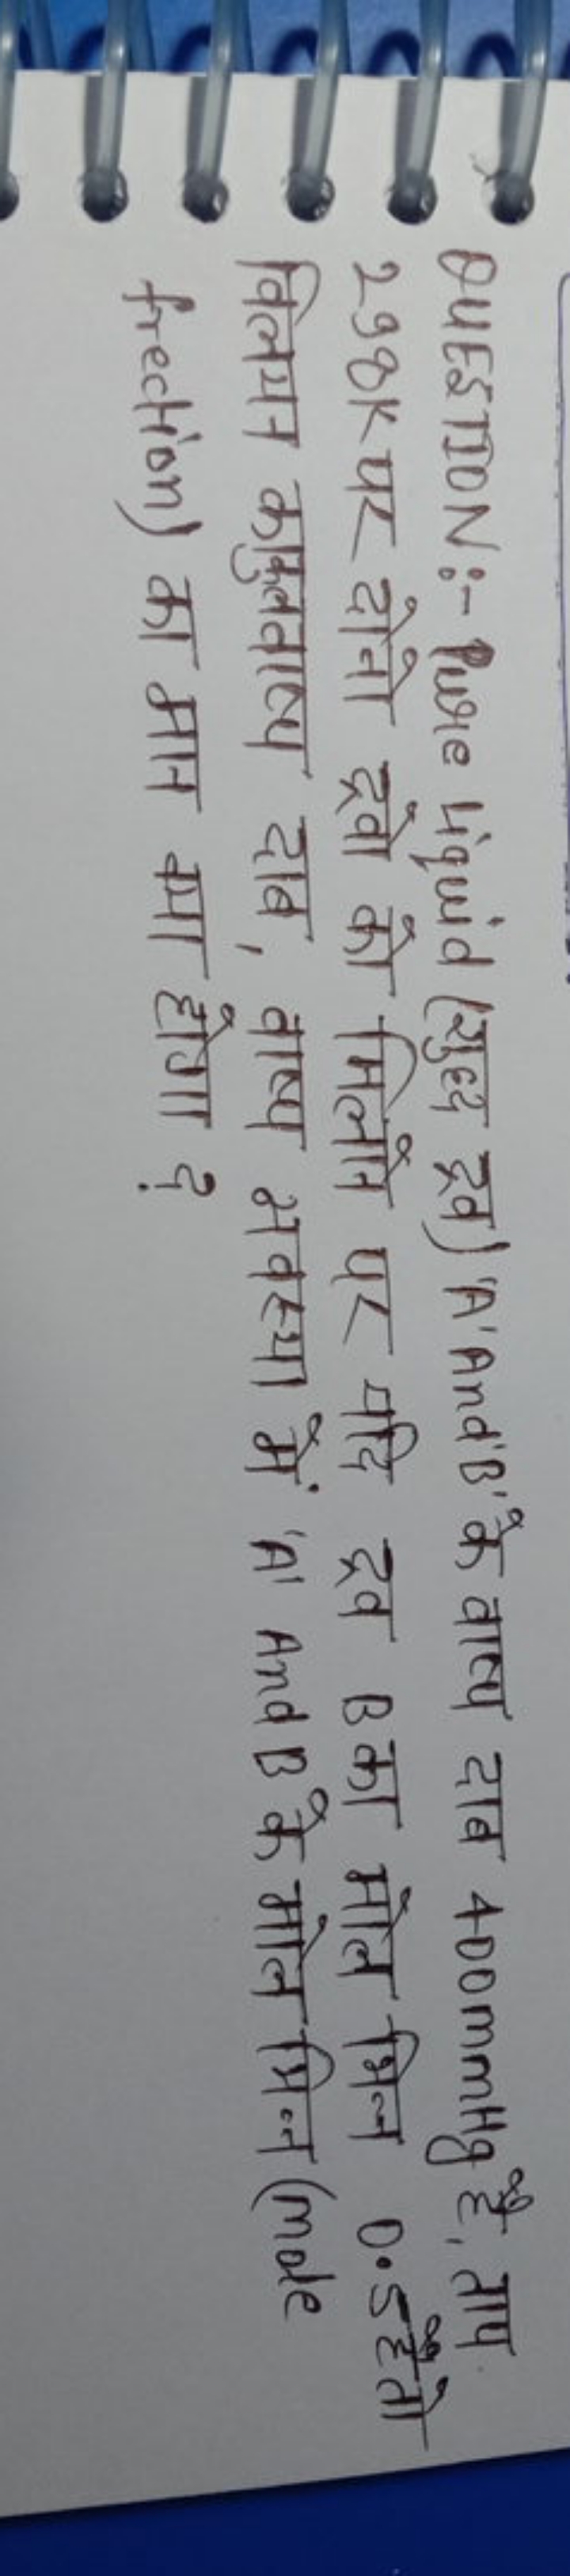 QUESTION:- Pure Liquid (शुद्ध द्रव) 'A' And 'B' के वाष्प दाब 400mmHg है, ताप
298K पर दोनो द्रवो को मिलाने पर यदि द्रव B का मोल भिन्न 0.5 है तो
विलयन का कुल वाष्प दाब, वाष्प अवस्था में 'A' And B के मोल भिन्न (mole
frection) का मान क्या होगा ?